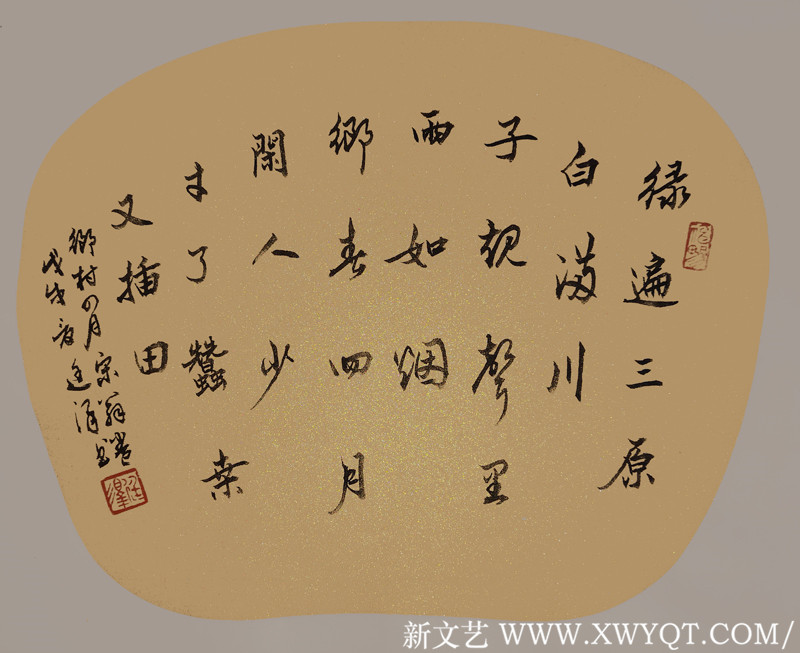 绿遍三原
白满川
子規聲里
雨如烟
鄉春四月
閑人少
才了蠶桑
又插田
鄉村四月宋翁卷
戊戌
新文艺 WWW.XWYQT.COM/